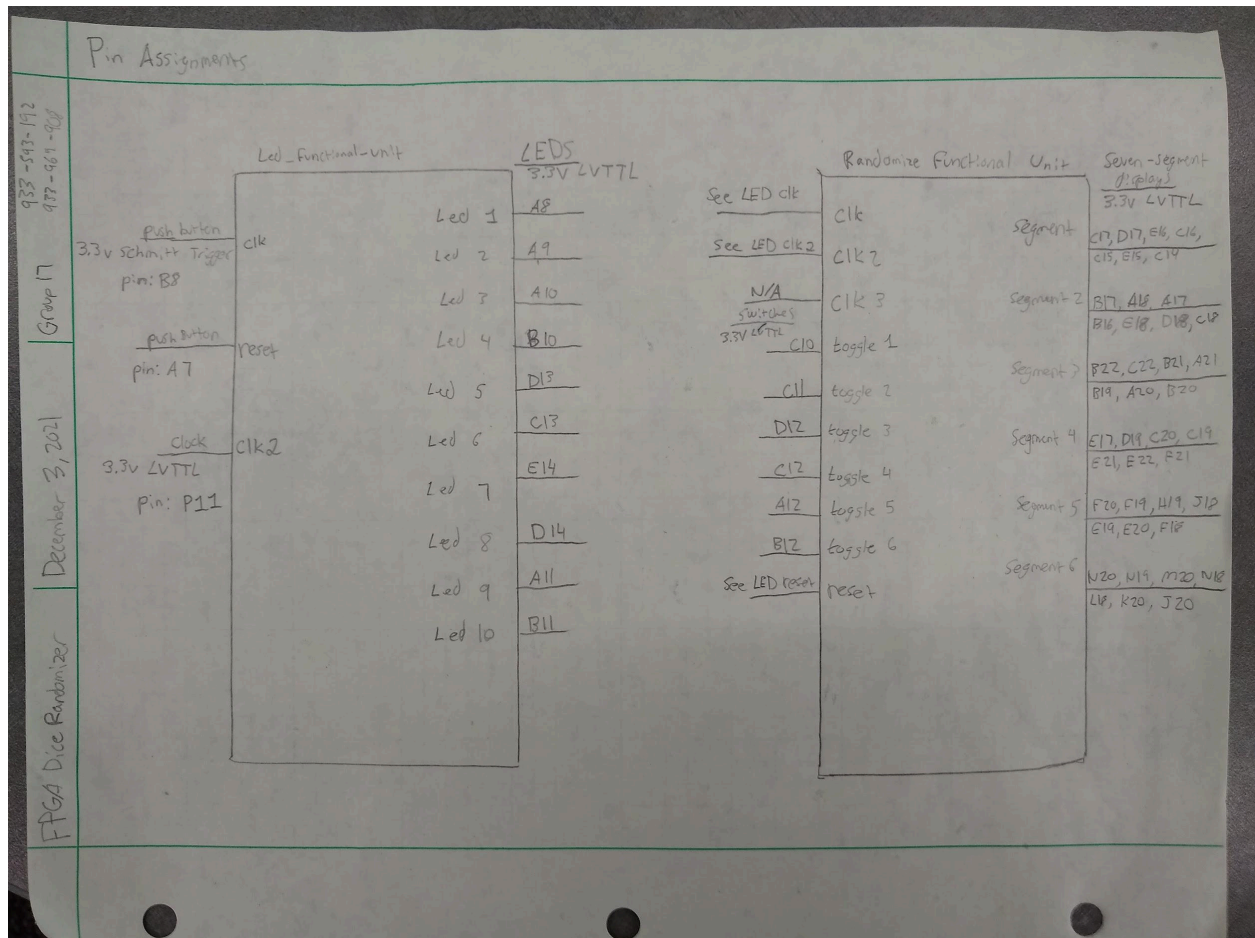 Pin Assignments
933-593-192
933-969-901
Group 17
December 3, 2021
FPGA Dice Randomizer
Led_Functional-unit
LEDS
3.3V LVTTL
push button
3.3v Schmitt Trigger
pin: B8
clk
push Button
pin: A7
reset
Clock
3.3v LVTTL
pin: P11
clk2
Led 1 A8
Led 2 A9
Led 3 A10
Led 4 B10
Led 5 D13
Led 6 C13
Led 7 E14
Led 8 D14
Led 9 A11
Led 10 B11
Randomize Functional Unit
Seven-segment
displays
3.3v LVTTL
See LED clk clk
See LED clk2 clk2
N/A clk 3
switches
3.3v LVTTL
C10 toggle 1
C11 toggle 2
D12 toggle 3
C12 toggle 4
A12 toggle 5
B12 toggle 6
See LED reset reset
Segment C17, D17, E16, C16,
C15, E15, C14
Segment 2 B17, A18, A17
B16, E18, D18, C18
Segment 3 B22, C22, B21, A21
B19, A20, B20
Segment 4 E17, D19, C20, C19
E21, E22, F21
Segment 5 F20, F19, H19, J18
E19, E20, F18
Segment 6 N20, N19, M20, N18
L18, K20, J20